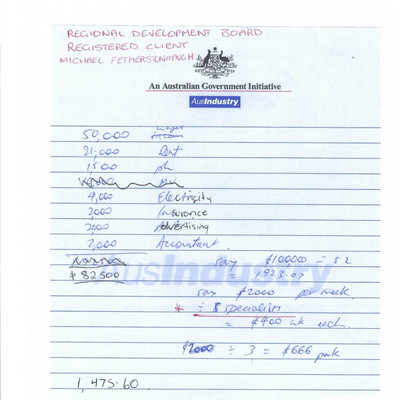 REGIONAL DEVELOPMENT BOARD
REGISTERED CLIENT
MICHAEL FETHERSTONHAUGH.
An Australian Government Initiative
AusIndustry
50,000 wages
21,000 Rent
1,500 ph
4,000 Electricity
2,000 Insurance
2,000 Advertising
2,000 Accountant.
$82500
AusIndustry
say $100000 ÷ 52
= 1923.07
say $2000 per week
* ÷ 5 specialists
= $400 wk each.
$2000 ÷ 3 = $666 pwk
1,475.60